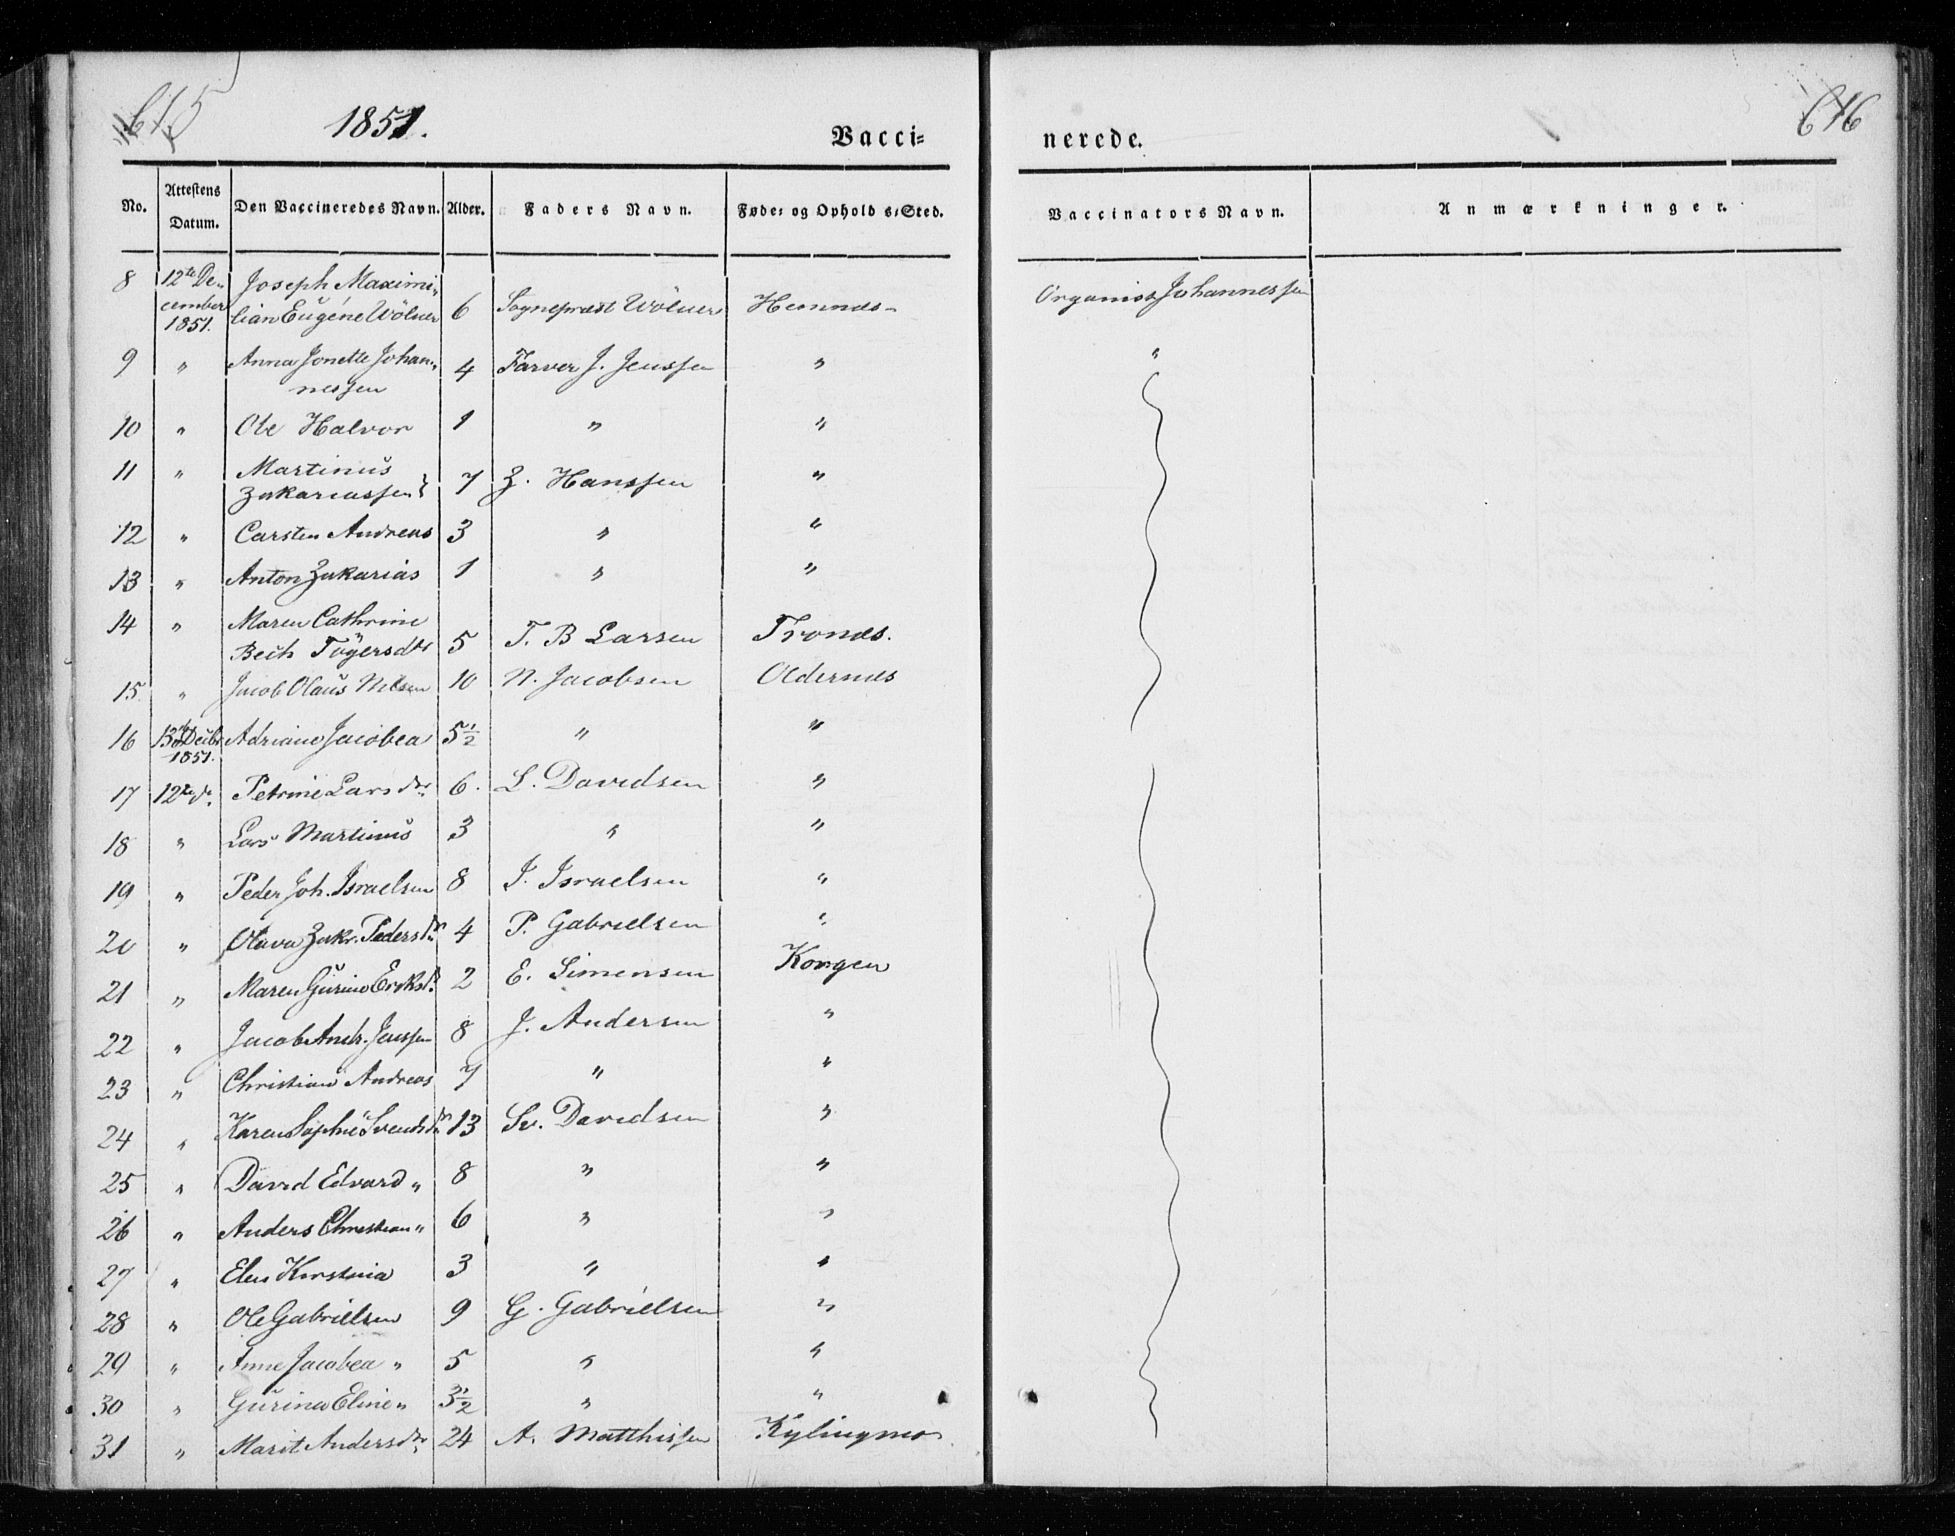 615
1851.
Vacci=
nerede.
616
No. Attestens Datum. Den Vaccineredes Navn. Alder. Faders Navn. Føde= og Ophold s=Sted. Vaccinators Navn. Anmærkninger.
8 12te De= Joseph Maximi=
cember lian Eugéne Wölner 6 Sognepræst Wölner Hemnes Organist Johannessen
1851.
9 " Anna Jonette Johan= 4 Farver J. Jenssen " "
nessen
10 " Ole Halvor 1 " "
11 " Martinus
Zakariassen 7 Z. Hanssen "
12 " Carsten Andreas 3 " "
13 " Anton Zakarias 1 " "
14 " Maren Cathrine
Bech Tögersdtr 5 T. B Larsen Trones.
15 " Jacob Olaus Nilsen 10 N. Jacobsen Oldernes
16 13de Decbr Adriane Jacobea 5½ " "
1851.
17 12te do. Petrine Larsdtr 6. L. Davidsen "
18 " Lars Martinus 3 " "
19 " Peder Joh. Israelsen 8 I. Israelsen "
20 " Olava Zakr. Pedersdr 4 P. Gabrielsen "
21 " Maren Gurine Eriksdr 2 E. Simensen Korgen
22 " Jacob Andr. Jenssen 8 J. Andersen "
23 " Christian Andreas 7 " "
24 " Karen Sophie Svendsdr 13 Sv. Davidsen "
25 " David Edvard " 8 " "
26 " Anders Christian " 6 " "
27 " Elen Kirstina 3 " "
28 " Ole Gabrielsen 9 G. Gabrielsen "
29 " Anne Jacobea " 5 " "
30 " Gurina Eline " 3½ " "
31 " Marit Andersdtr 24 A. Matthissen Kylingmo